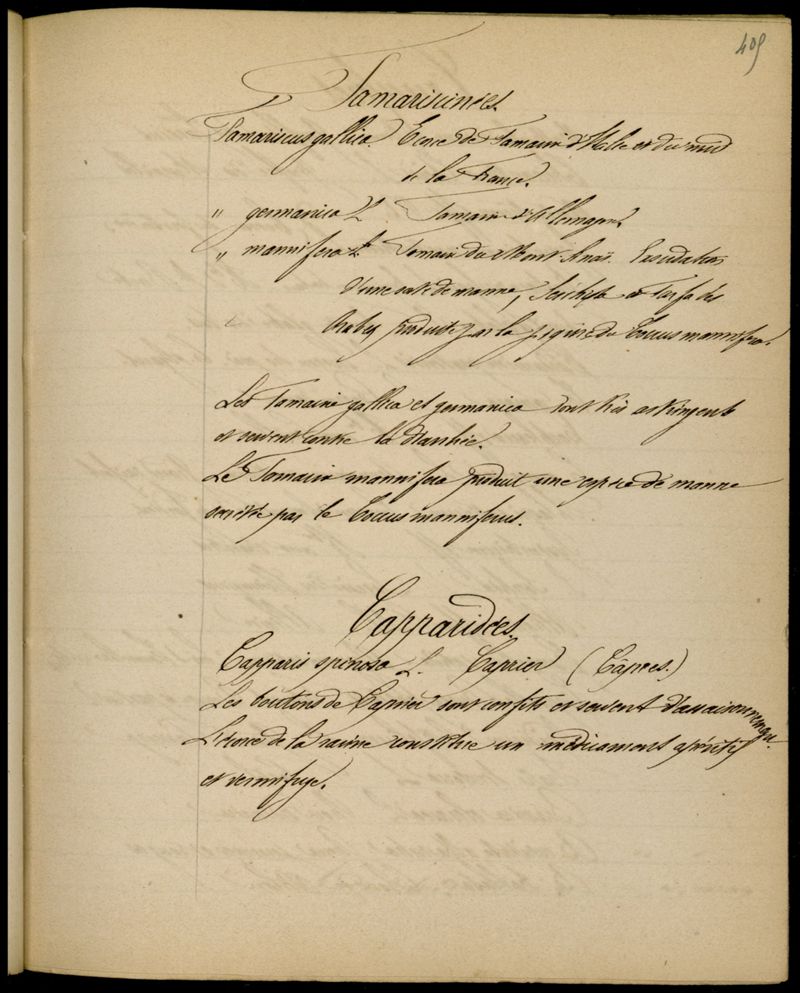 409
Tamariscinées.
Tamariscus gallica. Ecorce de Tamarin d'Italie et du midi
de la France.
" germanica L Tamarin d'Allemagne.
" mannifera L. Tamarin du Mont Sinaï. Exsudation
d'une sorte de manne,
Arabes produite par la piqûre du Coccus mannifera.
Les Tamarin gallica et germanica sont très astringents
et servent contre la diarrhée.
Le Tamarin mannifera produit une espèce de manne
par le Coccus manniferus.
Capparidées.
Capparis spinosa L. Caprier (Câpres.)
Les boutons de Caprier sont confits et servent d'assaisonnement.
L'écorce de la racine constitue un médicament apéritif
et vermifuge.